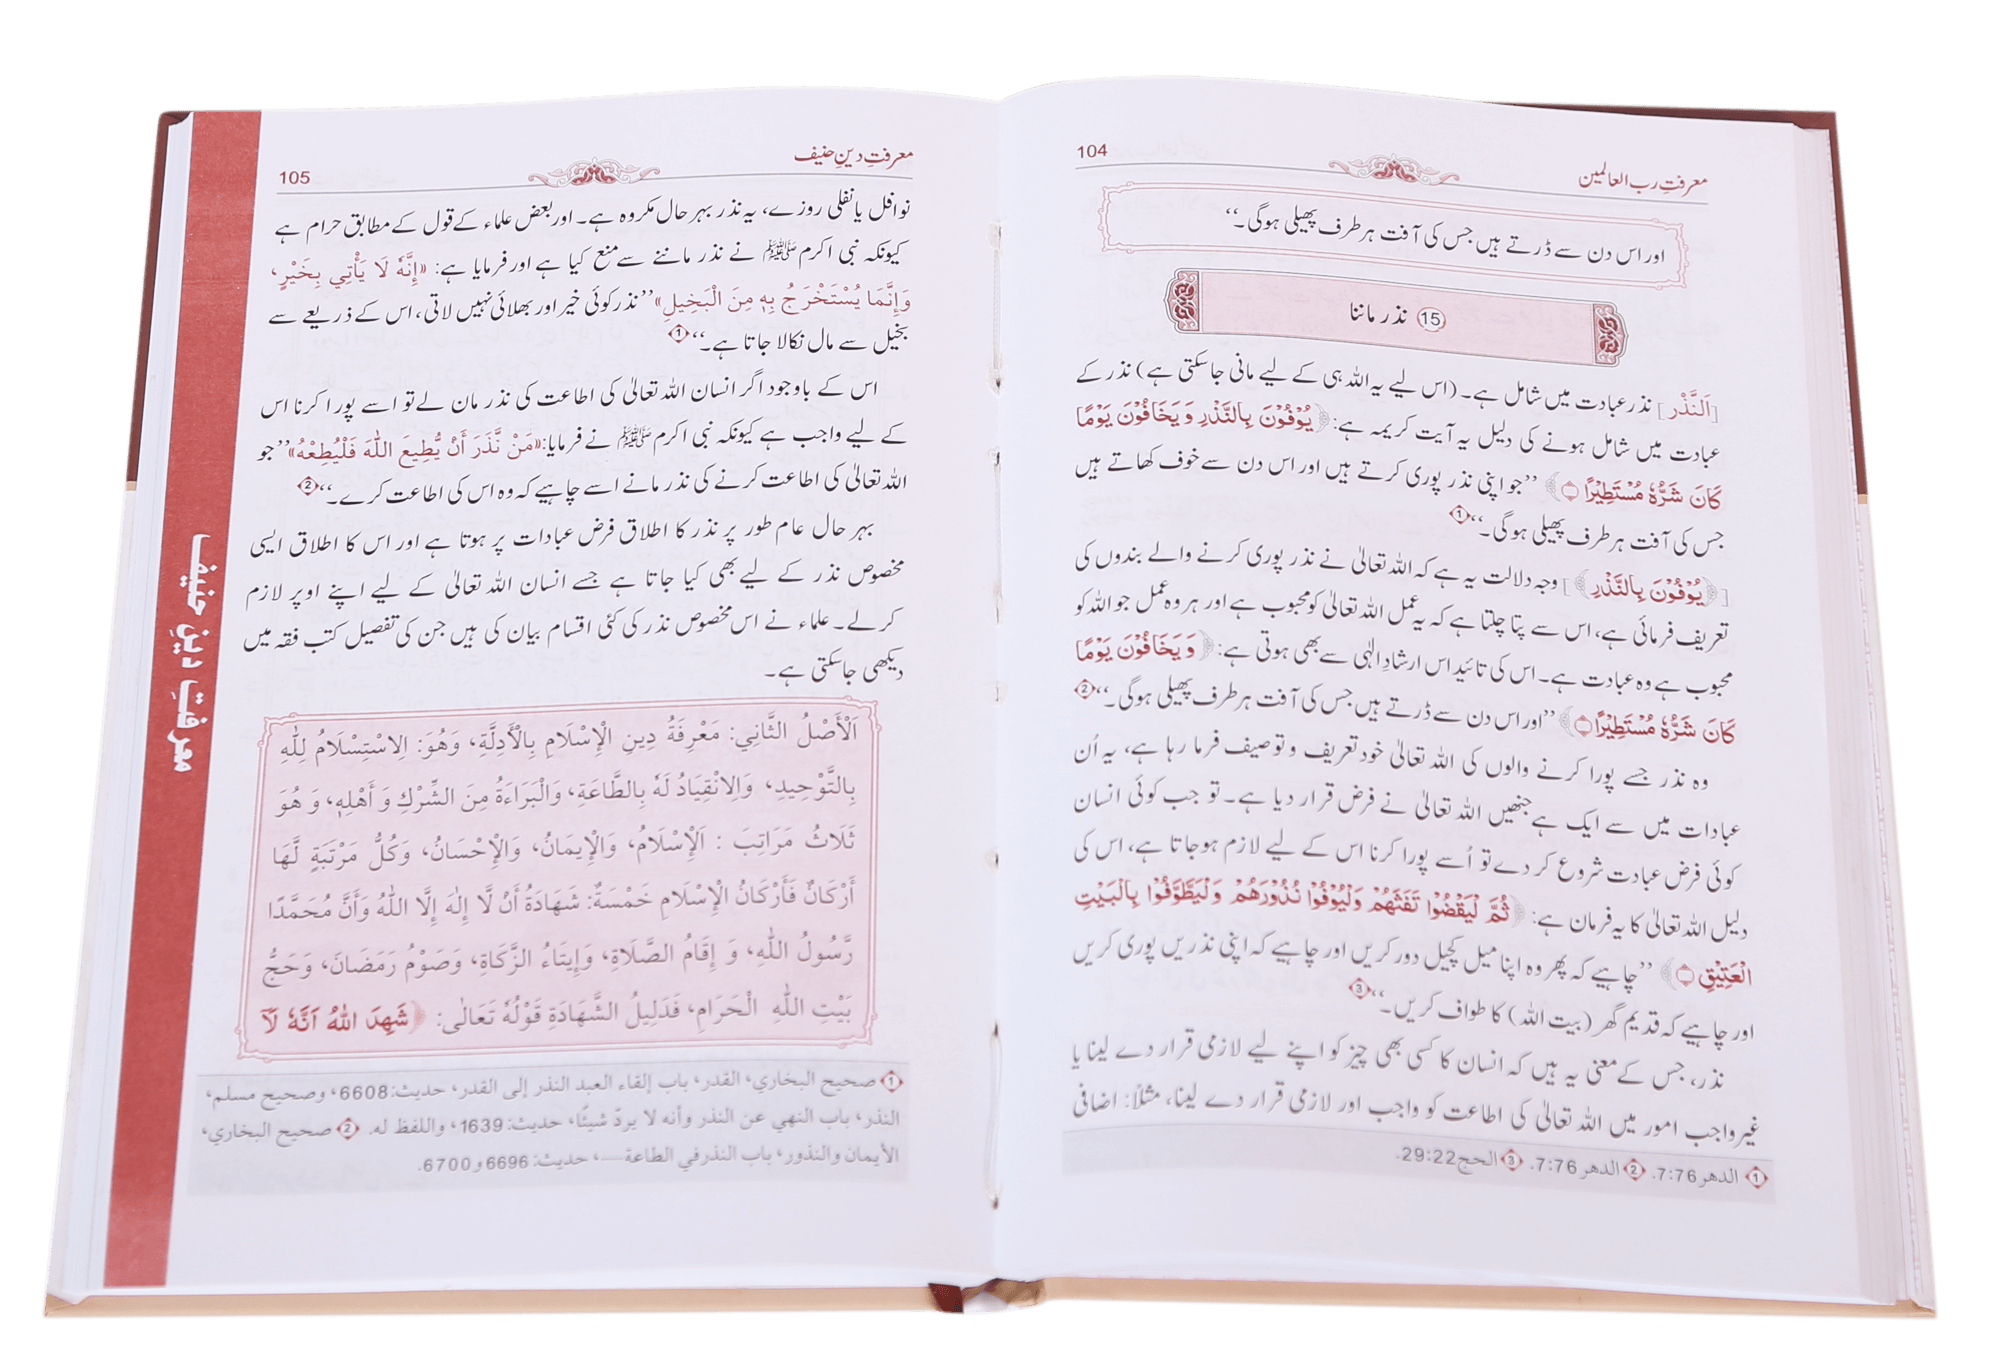 معرفتِ رب العالمین
104
اور اس دن سے ڈرتے ہیں جس کی آفت ہر طرف پھیلی ہوگی۔‘‘
15 نذر ماننا
[اَلنَّذْر] نذر عبادت میں شامل ہے۔ (اس لیے یہ اللہ ہی کے لیے مانی جاسکتی ہے) نذر کے
عبادت میں شامل ہونے کی دلیل یہ آیت کریمہ ہے: ﴿یُوْفُوْنَ بِالنَّذْرِ وَیَخَافُوْنَ یَوْمًا
كَانَ شَرُّهٗ مُسْتَطِیْرًا﴾ ’’جو اپنی نذر پوری کرتے ہیں اور اس دن سے خوف کھاتے ہیں
جس کی آفت ہر طرف پھیلی ہوگی۔‘‘ 1
[﴿یُوْفُوْنَ بِالنَّذْرِ﴾] وجہ دلالت یہ ہے کہ اللہ تعالیٰ نے نذر پوری کرنے والے بندوں کی
تعریف فرمائی ہے، اس سے پتا چلتا ہے کہ یہ عمل اللہ تعالیٰ کو محبوب ہے اور ہر وہ عمل جو اللہ کو
محبوب ہے وہ عبادت ہے۔ اس کی تائید اس ارشادِ الٰہی سے بھی ہوتی ہے: ﴿وَیَخَافُوْنَ یَوْمًا
كَانَ شَرُّهٗ مُسْتَطِیْرًا﴾ ’’اور اس دن سے ڈرتے ہیں جس کی آفت ہر طرف پھیلی ہوگی۔‘‘ 2
وہ نذر جسے پورا کرنے والوں کی اللہ تعالیٰ خود تعریف و توصیف فرما رہا ہے، یہ اُن
عبادات میں سے ایک ہے جنھیں اللہ تعالیٰ نے فرض قرار دیا ہے۔ تو جب کوئی انسان
کوئی فرض عبادت شروع کر دے تو اُسے پورا کرنا اس کے لیے لازم ہوجاتا ہے، اس کی
دلیل اللہ تعالیٰ کا یہ فرمان ہے: ﴿ثُمَّ لْیَقْضُوْا تَفَثَهُمْ وَلْیُوْفُوْا نُذُوْرَهُمْ وَلْیَطَّوَّفُوْا بِالْبَیْتِ
الْعَتِیْقِ﴾ ’’چاہیے کہ پھر وہ اپنا میل کچیل دور کریں اور چاہیے کہ اپنی نذریں پوری کریں
اور چاہیے کہ قدیم گھر (بیت اللہ) کا طواف کریں۔‘‘ 3
نذر، جس کے معنی یہ ہیں کہ انسان کا کسی بھی چیز کو اپنے لیے لازمی قرار دے لینا یا
غیر واجب امور میں اللہ تعالیٰ کی اطاعت کو واجب اور لازمی قرار دے لینا، مثلاً: اضافی
1 الدهر 7:76. 2 الدهر 7:76. 3 الحج 29:22.
معرفتِ دینِ حنیف
105
نوافل یا نفلی روزے، یہ نذر بہر حال مکروہ ہے۔ اور بعض علماء کے قول کے مطابق حرام ہے
کیونکہ نبی اکرم ﷺ نے نذر ماننے سے منع کیا ہے اور فرمایا ہے: «إِنَّهُ لَا يَأْتِي بِخَيْرٍ،
وَإِنَّمَا يُسْتَخْرَجُ بِهِ مِنَ الْبَخِيلِ» ’’نذر کوئی خیر اور بھلائی نہیں لاتی، اس کے ذریعے سے
بخیل سے مال نکالا جاتا ہے۔‘‘ 1
اس کے باوجود اگر انسان اللہ تعالیٰ کی اطاعت کی نذر مان لے تو اسے پورا کرنا اس
کے لیے واجب ہے کیونکہ نبی اکرم ﷺ نے فرمایا: «مَنْ نَّذَرَ أَنْ يُّطِيعَ اللّٰهَ فَلْيُطِعْهُ» ’’جو
اللہ تعالیٰ کی اطاعت کرنے کی نذر مانے اسے چاہیے کہ وہ اس کی اطاعت کرے۔‘‘ 2
بہر حال عام طور پر نذر کا اطلاق فرض عبادات پر ہوتا ہے اور اس کا اطلاق ایسی
مخصوص نذر کے لیے بھی کیا جاتا ہے جسے انسان اللہ تعالیٰ کے لیے اپنے اوپر لازم
کرلے۔ علماء نے اس مخصوص نذر کی کئی اقسام بیان کی ہیں جن کی تفصیل کتب فقہ میں
دیکھی جاسکتی ہے۔
اَلْأَصْلُ الثَّانِي: مَعْرِفَةُ دِينِ الْإِسْلَامِ بِالْأَدِلَّةِ، وَهُوَ: اَلِاسْتِسْلَامُ لِلّٰهِ
بِالتَّوْحِيدِ، وَالِانْقِيَادُ لَهُ بِالطَّاعَةِ، وَالْبَرَاءَةُ مِنَ الشِّرْكِ وَأَهْلِهِ، وَهُوَ
ثَلَاثُ مَرَاتِبَ : اَلْإِسْلَامُ، وَالْإِيمَانُ، وَالْإِحْسَانُ، وَكُلُّ مَرْتَبَةٍ لَّهَا
أَرْكَانٌ فَأَرْكَانُ الْإِسْلَامِ خَمْسَةٌ: شَهَادَةُ أَنْ لَّا إِلٰهَ إِلَّا اللّٰهُ وَأَنَّ مُحَمَّدًا
رَّسُولُ اللّٰهِ، وَإِقَامُ الصَّلَاةِ، وَإِيتَاءُ الزَّكَاةِ، وَصَوْمُ رَمَضَانَ، وَحَجُّ
بَيْتِ اللّٰهِ الْحَرَامِ، فَدَلِيلُ الشَّهَادَةِ قَوْلُهُ تَعَالٰى: ﴿شَهِدَ اللّٰهُ اَنَّهٗ لَاۤ
1 صحيح البخاري، القدر، باب إلقاء العبد النذر إلى القدر، حديث: 6608، وصحيح مسلم،
النذر، باب النهي عن النذر وأنه لا يردّ شيئًا، حديث: 1639، واللفظ له. 2 صحيح البخاري،
الأيمان والنذور، باب النذر في الطاعة.....، حديث: 6696 و 6700.
معرفتِ دینِ حنیف